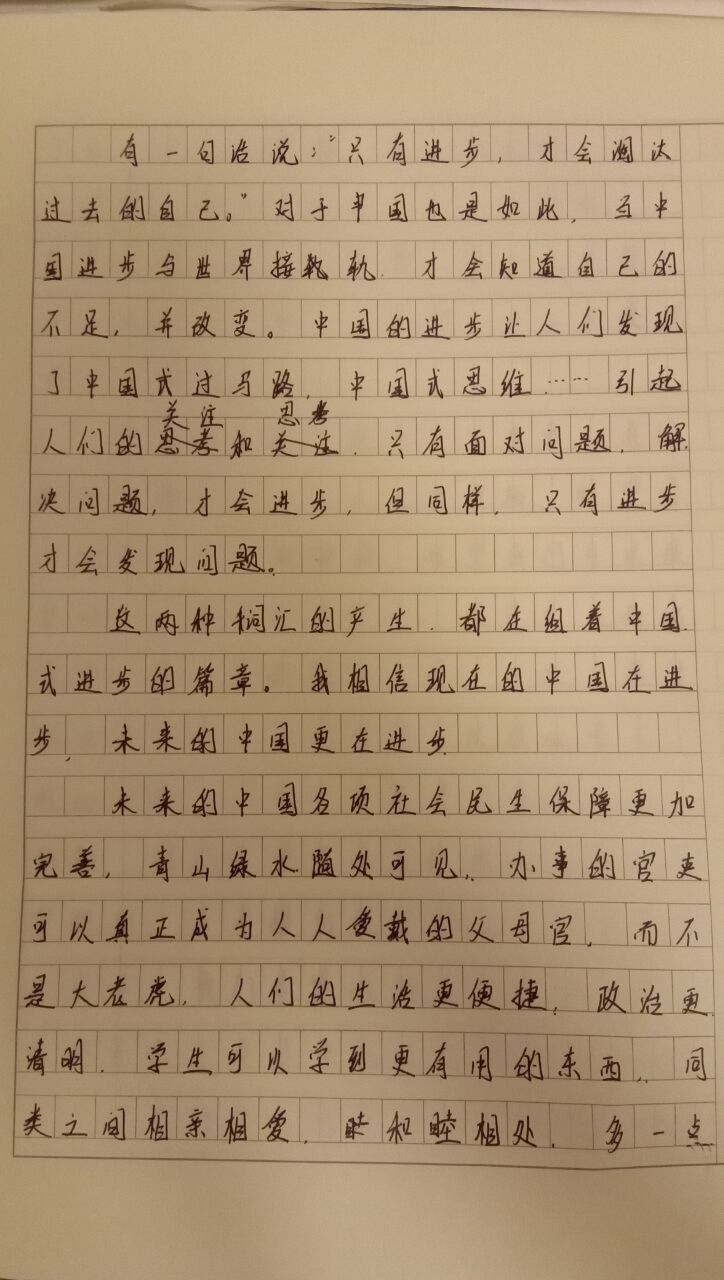 有一句话说："只有进步，才会淘汰
过去的自己。"对于中国也是如此，当中
国进步与世界接轨，才会知道自己的
不足，并改变。中国的进步让人们发现
了中国式过马路，中国式思维……引起
人们的关注和思考，只有面对问题，解
决问题，才会进步，但同样，只有进步
才会发现问题。
这两种词汇的产生，都在组着中国
式进步的篇章。我相信现在的中国在进
步，未来的中国更在进步
未来的中国各项社会民生保障更加
完善，青山绿水随处可见，办事的官吏
可以真正成为人人爱戴的父母官，而不
是大老虎，人们的生活更便捷，政治更
清明，学生可以学到更有用的东西，同
类之间相亲相爱，和睦相处，多一点